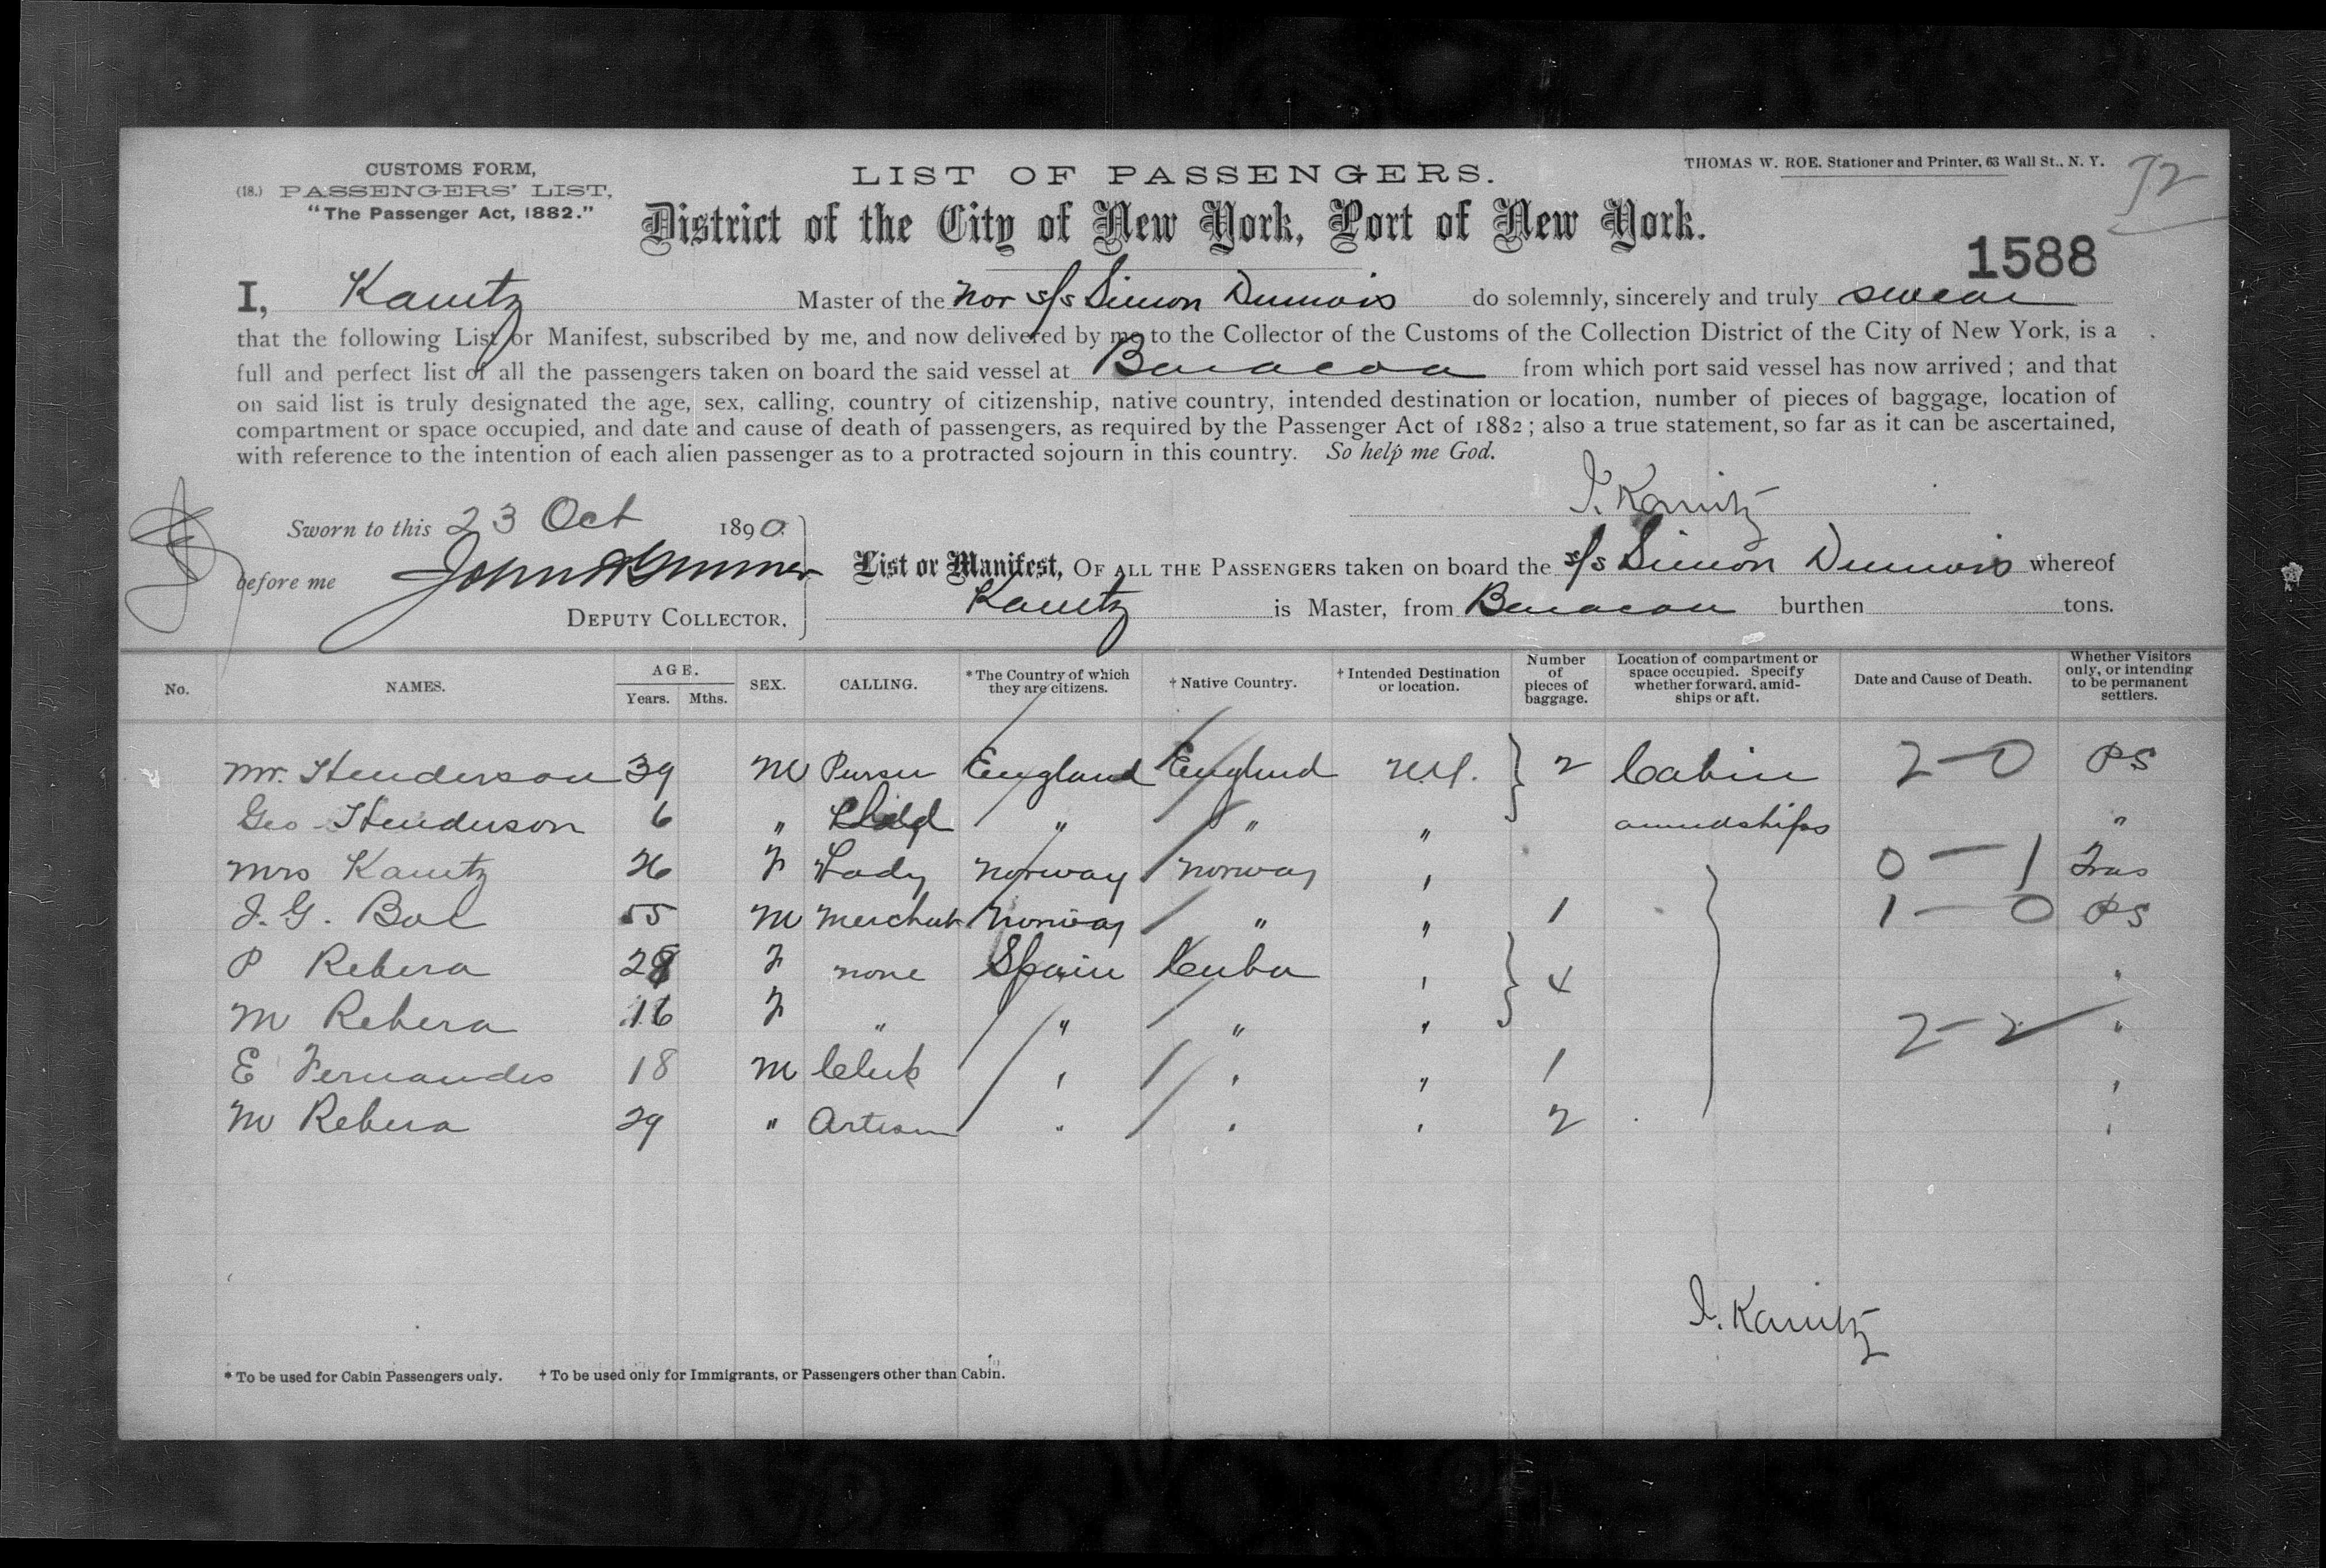 CUSTOMS FORM,
(18.) PASSENGERS' LIST,
"The Passenger Act, 1882."
LIST OF PASSENGERS.
THOMAS W. ROE. Stationer and Printer, 63 Wall St., N. Y.
72
District of the City of New York, Port of New York.
1588
I, Kanitz Master of the Nor s/s Simon Dumois do solemnly, sincerely and truly swear
that the following List or Manifest, subscribed by me, and now delivered by me to the Collector of the Customs of the Collection District of the City of New York, is a
full and perfect list of all the passengers taken on board the said vessel at Baracoa from which port said vessel has now arrived; and that
on said list is truly designated the age, sex, calling, country of citizenship, native country, intended destination or location, number of pieces of baggage, location of
compartment or space occupied, and date and cause of death of passengers, as required by the Passenger Act of 1882; also a true statement, so far as it can be ascertained,
with reference to the intention of each alien passenger as to a protracted sojourn in this country. So help me God.
I. Kanitz
Sworn to this 23 Oct 1890.
before me John
DEPUTY COLLECTOR,
List or Manifest, OF ALL THE PASSENGERS taken on board the s/s Simon Dumois whereof
Kanitz is Master, from Baracoa burthen tons.
No. NAMES. AGE. Years. Mths. SEX. CALLING. * The Country of which they are citizens. † Native Country. † Intended Destination or location. Number of pieces of baggage. Location of compartment or space occupied. Specify whether forward, amidships or aft. Date and Cause of Death. Whether Visitors only, or intending to be permanent settlers.
Mr. Henderson 39 M Purser England England N.Y. 2 Cabin 2-0 PS
Geo Henderson 6 " Child " " " amidships "
Mrs Kanitz 26 F Lady Norway Norway " 0-1 Tras
J. G. Bal 55 M Merchant Norway " " 1 1-0 PS
P Rebera 28 F none Spain Cuba " 4 "
M Rebera 16 F " " " " 2-2 "
E Fernandes 18 M Clerk " " " 1 "
M Rebera 29 " Artisan " " " 2 "
I. Kanitz
* To be used for Cabin Passengers only. † To be used only for Immigrants, or Passengers other than Cabin.